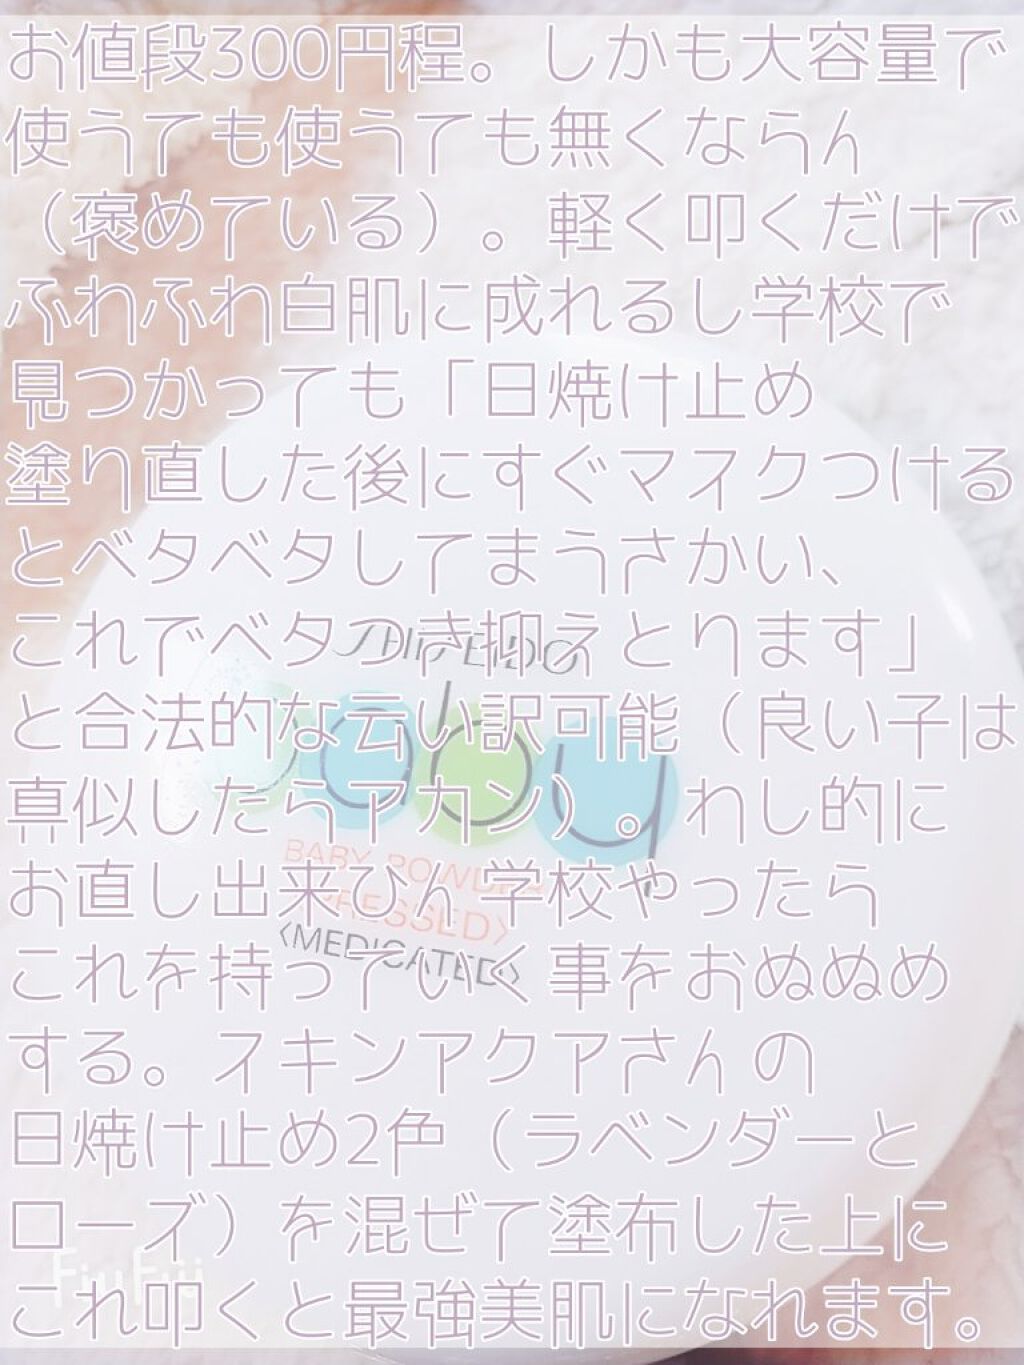 お値段300円程。しかも大容量で
使うても使うても無くならん
（褒めている）。軽く叩くだけで
ふわふわ白肌に成れるし学校で
見つかっても「日焼け止め
塗り直した後にすぐマスクつける
とベタベタしてまうさかい、
これでベタつき抑えとります」
と合法的な云い訳可能（良い子は
真似したらアカン）。わし的に
お直し出来ひん学校やったら
これを持っていく事をおぬぬめ
する。スキンアクアさんの
日焼け止め2色（ラベンダーと
ローズ）を混ぜて塗布した上に
これ叩くと最強美肌になれます。
SHISEIDO
baby
BABY POWDER
〈PRESSED〉
〈MEDICATED〉